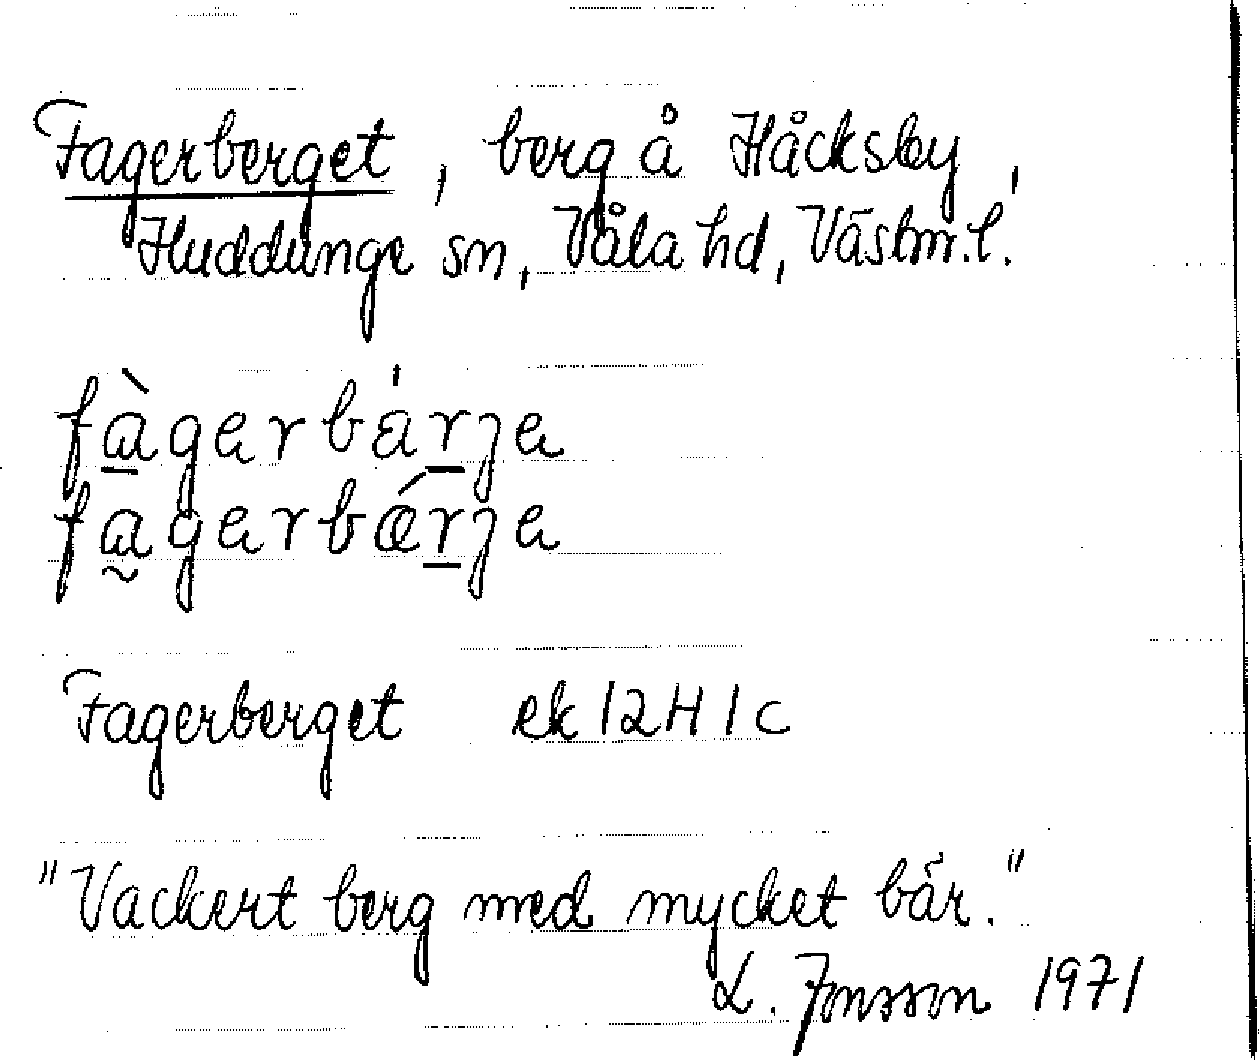 Fagerberget, berg å Håcksby,
Huddunge sn, Våla hd, Västm. l.
fàgerbárje
fagerbǽrje
Fagerberget ek 12H1c
"Vackert berg med mycket bär."
L. Jonsson 1971